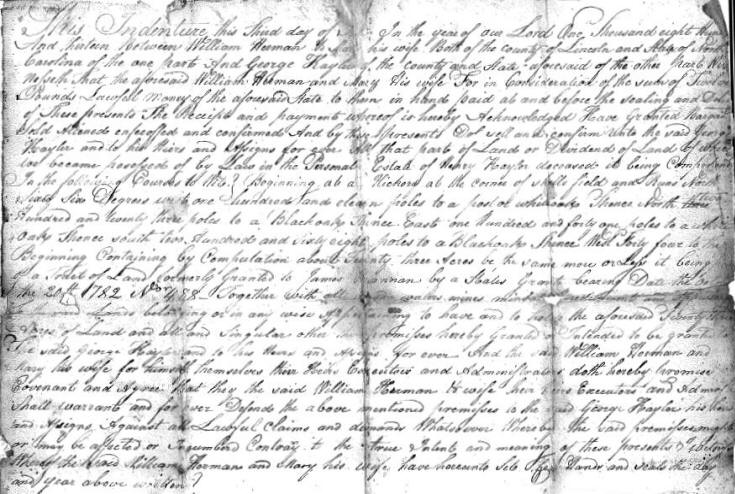 This Indenture this Third day of In the year of our Lord One Thousand eight
And thirteen between William Herman & Mary his wife Both of the County of Lincoln and State of North
Carolina of the one part And George Haylor of the county and State aforesaid of the other part
That the aforesaid William Herman and Mary His wife For in Consideration of the sum of
Pounds Lawfull money of the aforesaid State to them in hand paid at and before the sealing and
of These presents The Receipt and payment whereof is hereby Acknowledged Have Granted
Sold Aliened enfeoffed and confirmed And by these presents Do sell and confirm unto the said George
Haylor and to his Heirs and Assigns for ever All that part of Land or Dividend of Land
became possessed of by Law in the Personal Estate of Henry Haylor deceased it being
In the following Courses to Wit Beginning at a Hickory at the corner of field and Runs North
Sixty Six Degrees west one Hundred and eleven poles to a post or whiteoak Thence North
Hundred and twenty three poles to a Blackoak Thence East one Hundred and forty one poles to a
Oak Thence south two Hundred and Sixty eight poles to a Blackoak Thence West Forty four to the
Beginning Containing by Computation about Seventy three Acres be the same more or Less it being
of a Tract of Land formerly Granted to James by a States Grant bearing Date the
the 20th 1782 No 488 Together with all mines
Lands belonging or in any wise Appertaining to have and to hold the aforesaid Seventy
Acres of Land and all and Singular other the promisses hereby Granted or Intended to be granted
The said George Haylor and to his Heirs and Assigns for ever And the said William Herman and
Mary his wife for themselves their Heirs Executors and Administrators doth hereby promise
Covenant and Agree That they the said William Herman & wife their Heirs Executors and
Shall warrant and for ever Defend the above mentioned premisses to the said George Haylor his Heirs
and Assigns Against all Lawful Claims and demands Whatsoever Whereby the said premisses
or may be affected or Incumbred Contrary to the true Intent and meaning of these presents
Whereof the said William Hermans and Mary his wife have hereunto set Their Hands and seals the day
and year above written